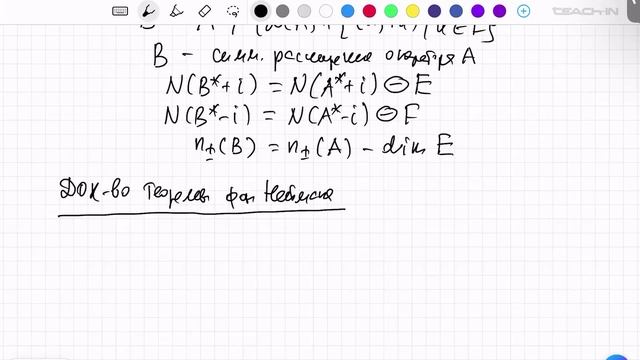 TEACH-IN
B – симм. расширение оператора A
N(B*+i) = N(A*+i) ⊖ E
N(B*-i) = N(A*-i) ⊖ F
n±(B) = n±(A) – dim E
Док-во теоремы фон Неймана